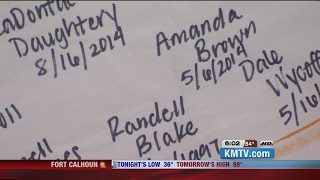 LaDontae
Daughtery
8/16/2014
Amanda
Brown
5/6/2014
Dale
Wycoff
5/16/
Randell
Blake
6:02 54° HD
KMTV.com
FORT CALHOUN TONIGHT'S LOW 36° TOMORROW'S HIGH 59°